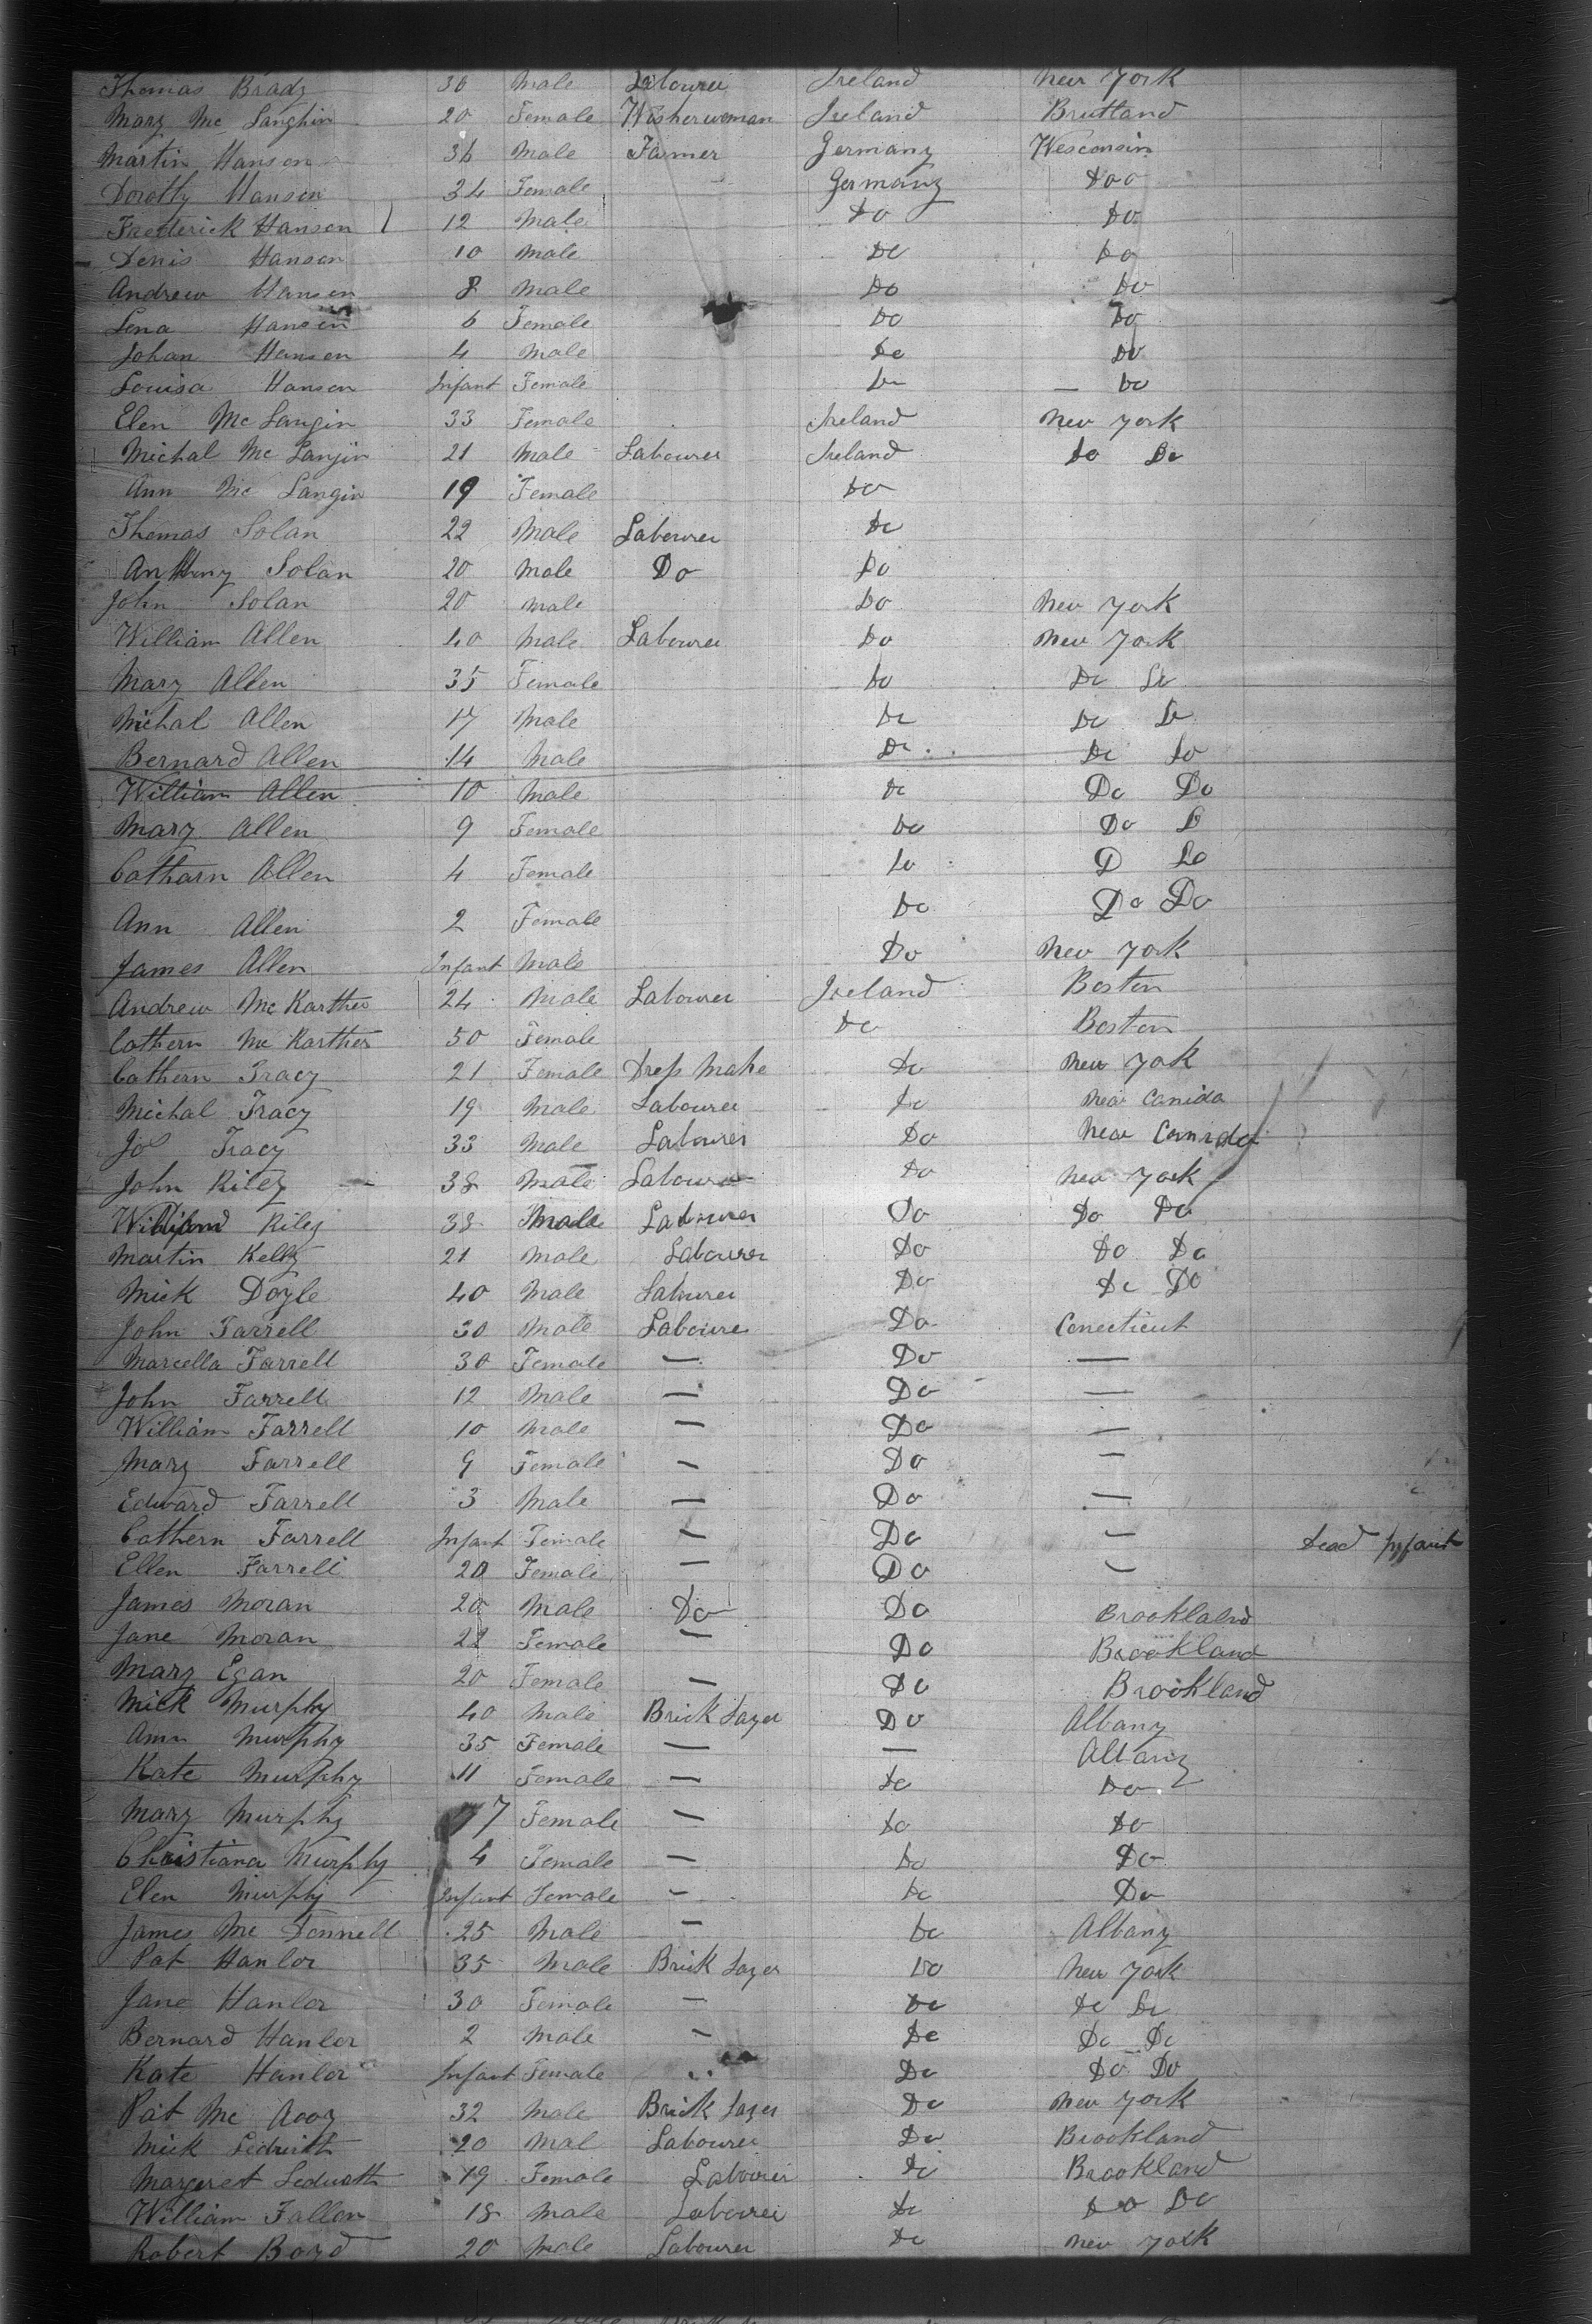 Thomas Brady 30 Male Labourer Ireland New York
Mary Mc Langhin 20 Female Wisherwoman Ireland Bruttland
Martin Hansen 36 Male Farmer Germany Wesconsin
Dorothy Hansen 34 Female Germany Doo
Frederick Hansen 12 Male Do Do
Denis Hansen 10 Male Do Do
Andrew Hansen 8 Male Do Do
Lena Hansen 6 Female Do Do
Johan Hansen 4 Male Do Do
Louisa Hansen Infant Female Do — Do
Elen Mc Langin 33 Female Ireland New York
Michal Mc Langin 21 Male Labourer Ireland Do Do
Ann Mc Langin 19 Female Do
Thomas Solan 22 Male Labourer Do
Anthony Solan 20 Male Do Do
John Solan 20 Male Do New York
William Allen 40 Male Labourer Do New York
Mary Allen 35 Female Do Do Do
Michal Allen 17 Male Do Do Do
Bernard Allen 14 Male Do Do Do
William Allen 10 Male Do Do Do
Mary Allen 9 Female Do Do D
Catharn Allen 4 Female Do D Do
Ann Allen 2 Female Do Do Do
James Allen Infant Male Do New York
Andrew Mc Karther 24 Male Labourer Ireland Boston
Cathern Mc Karther 50 Female Do Boston
Cathern Tracy 21 Female Dress Make Do New York
Michal Tracy 19 Male Labourer Do New Canida
Jo Tracy 33 Male Labourer Do New Canada
John Riley 38 Male Labourer Do New York
William Riley 38 Male Labourer Do Do Do
Martin Kelly 21 Male Labourer Do Do Do
Mick Doyle 40 Male Labourer Do Do Do
John Farrell 30 Male Labourer Do Conecticut
Marcella Farrell 30 Female — Do —
John Farrell 12 Male — Do —
William Farrell 10 Male — Do —
Mary Farrell 9 Female — Do —
Edward Farrell 3 Male — Do —
Cathern Farrell Infant Female — Do — Dead Infant
Ellen Farrell 20 Female — Do —
James Moran 20 Male Do Do Brookland
Jane Moran 22 Female — Do Brookland
Mary Egan 20 Female — Do Brookland
Mick Murphy 40 Male Brick Layer Do Albany
Ann Murphy 35 Female — — Albany
Kate Murphy 11 Female — Do Do
Mary Murphy 7 Female — Do Do
Christiana Murphy 4 Female — Do Do
Elen Murphy Infant Female — Do Do
James Mc Donnell 25 Male — Do Albany
Pat Hanlor 35 Male Brick Layer Do New York
Jane Hanlor 30 Female — Do Do Do
Bernard Hanlor 2 Male — Do Do Do
Kate Hanlor Infant Female Do Do Do
Pat Mc Avoy 32 Male Brick Layer Do New York
Mick Ledwith 20 Mal Labourer Do Brookland
Margeret Ledwith 19 Female Labourer Do Brookland
William Fallon 18 Male Labourer Do Do Do
Robert Boyd 20 Male Labourer Do New York